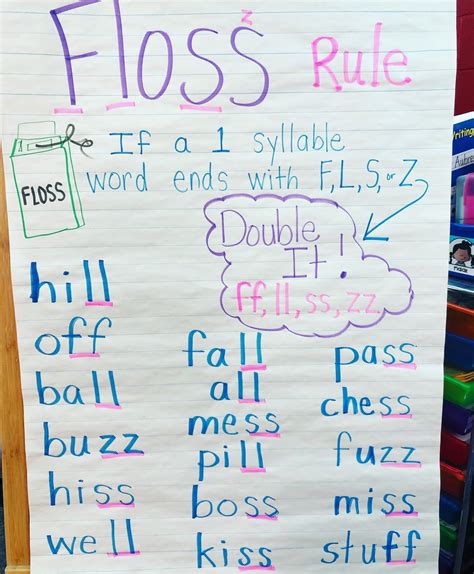 z
Floss Rule
If a 1 syllable
word ends with F, L, S, or Z
FLOSS
Double
It!
ff, ll, ss, zz
hill
off
ball
buzz
hiss
well
fall
all
mess
pill
boss
kiss
pass
chess
fuzz
miss
stuff
Writing